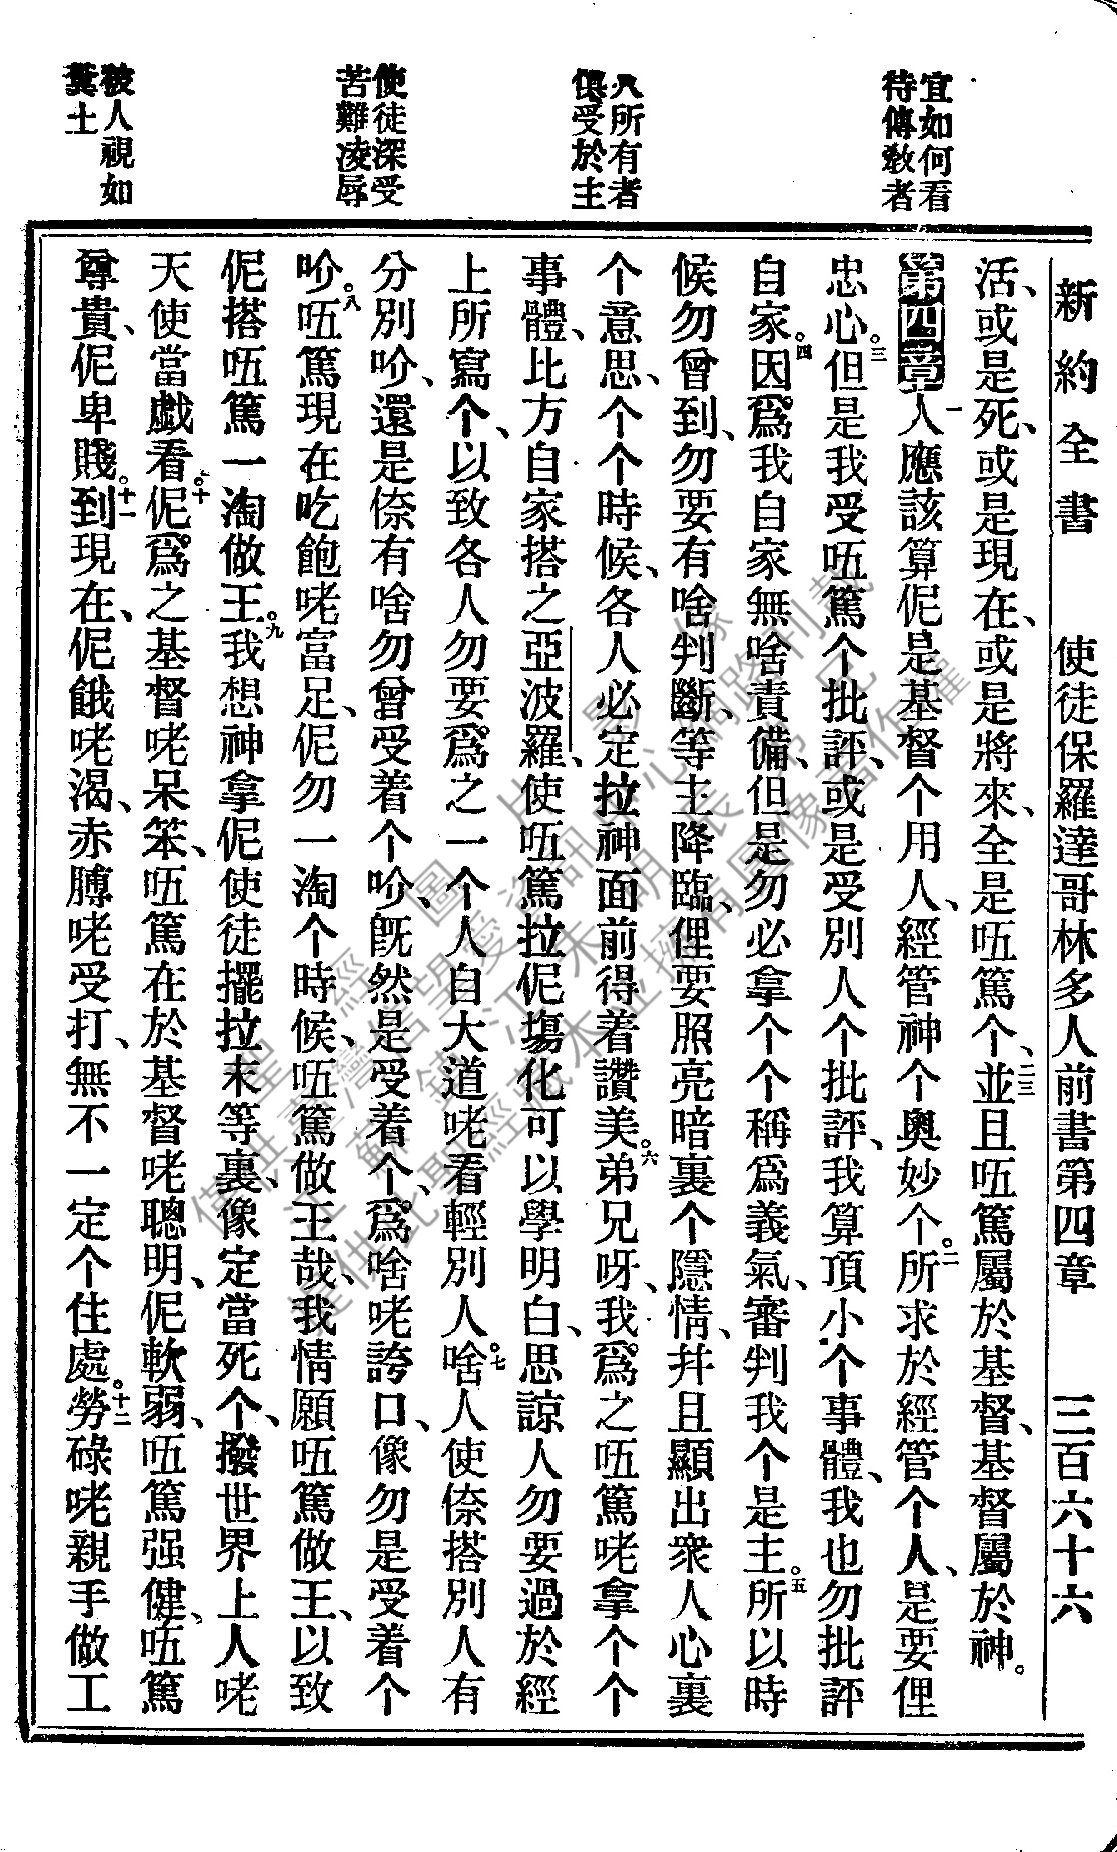 新約全書　使徒保羅達哥林多人前書第四章　三百六十六
宜如何看
待傳教者
人所有者
俱受於主
使徒深受
苦難凌辱
被人視如
糞土
活、或是死、或是現在、或是將來、全是𠲎篤个、二三並且𠲎篤屬於基督、基督屬於神。
第四章一人應該算伲是基督个用人、經管神个奧妙个。二所求於經管个人、是要俚
忠心。三但是我受𠲎篤个批評、或是受別人个批評、我算頂小个事體、我也勿批評
自家。四因爲我自家無啥責備、但是勿必拿个个稱爲義氣、審判我个是主。五所以時
候勿曾到、勿要有啥判斷、等主降臨、俚要照亮暗裏个隱情、幷且顯出衆人心裏
个意思、个个時候、各人必定拉神面前得着讚美。六弟兄呀、我爲之𠲎篤咾拿个个
事體、比方自家搭之亞波羅、使𠲎篤拉伲塲化可以學明白、思諒人勿要過於經
上所寫个、以致各人勿要爲之一个人自大道咾看輕別人。七啥人使倷搭別人有
分別吤、還是倷有啥勿曾受着个吤、既然是受着个、爲啥咾誇口、像勿是受着个
吤。八𠲎篤現在吃飽咾富足、伲勿一淘个時候、𠲎篤做王哉、我情願𠲎篤做王、以致
伲搭𠲎篤一淘做王。九我想神拿伲使徒擺拉末等裏、像定當死个、撥世界上人咾
天使當戲看。十伲爲之基督咾呆笨、𠲎篤在於基督咾聰明、伲軟弱、𠲎篤强健、𠲎篤
尊貴、伲卑賤。十一到現在、伲餓咾渴、赤膊咾受打、無不一定个住處。十二勞碌咾親手做工